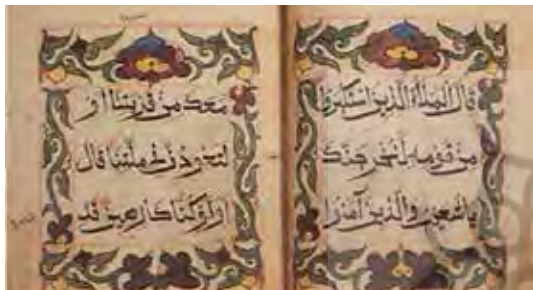 قال الملأ الذين استكبروا
من قومه لنخرجنك
ياشعيب والذين آمنوا
معك من قريتنا او
لتعودن في ملتنا قال
اولو كنا كارهين قد